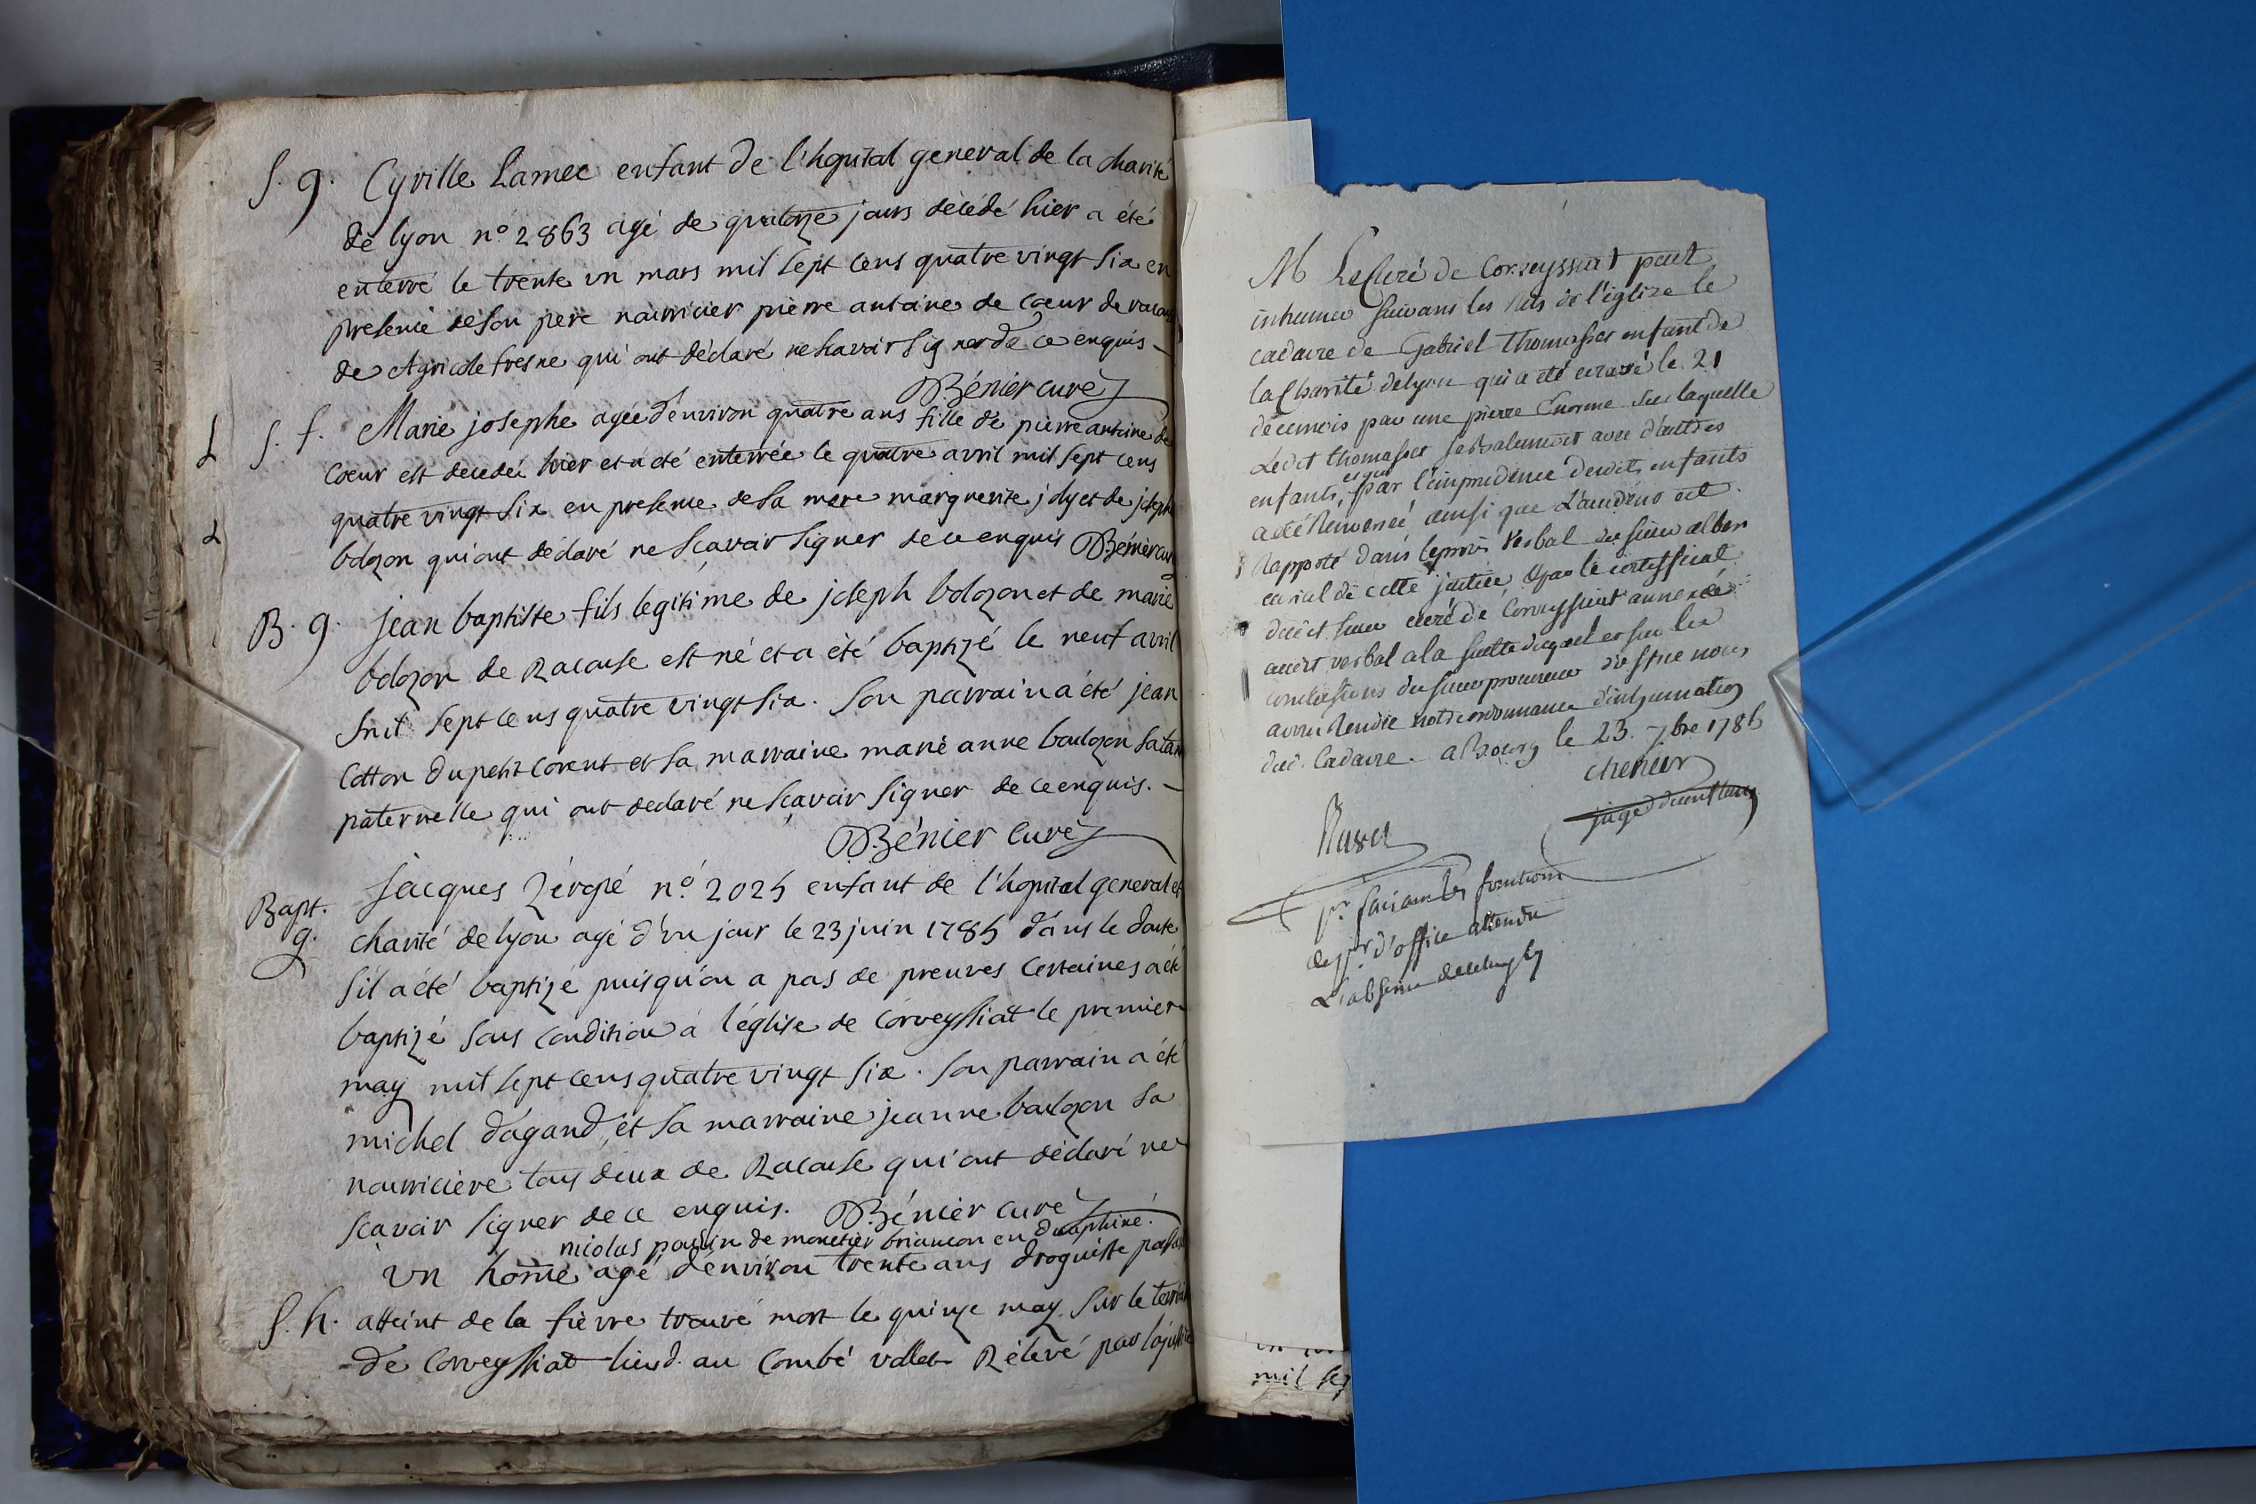 S. g. Cyrille Lamee enfant de l'hopital general de la charité
de lyon n.o 2863 agé de quatorze jours décédé hier a été
enterré le trente un mars mil sept cens quatre vingt six en
presence de son pere nourricier pierre antoine de Coeur de racouse
de Agricole fresne qui ont déclaré ne scavoir signer de ce enquis
Bénier curé
L S. f. Marie josephe agée d'environ quatre ans fille de pierre antoine de
Coeur est decedée hier et a été enterrée le quatre avril mil sept cens
quatre vingt six en presence de sa mere marguerite joly et de joseph
L bolozon qui ont déclaré ne sçavoir signer de ce enquis Bénier curé
B. g. jean baptiste fils legitime de joseph bolozon et de marie
bolozon de Racouse est né et a été baptizé le neuf avril
mil sept cens quatre vingt six. Son parrain a été jean
Cotton du petit Corent et sa marraine marie anne boulozon sa tante
paternelle qui ont declaré ne sçavoir signer de ce enquis.
Bénier Curé
Bapt. g. Jacques Zéropé n.o 2025 enfant de l'hopital general et
charité de lyon agé d'un jour le 23 juin 1785 dans le doute
s'il a été baptizé puisqu'on a pas de preuves certaines a été
baptizé sous condition a l'église de Corveyssiat le premier
may mil sept cens quatre vingt six. Son parrain a été
michel dagand et sa marraine jeanne boulozon sa
nourriciere tous deux de Racouse qui ont déclaré ne
scavoir signer de ce enquis. Bénier curé
nicolas de monetier briancon en dauphiné.
Un home agé d'environ trente ans droguiste
S. h. atteint de la fièvre trouvé mort le quinze may sur le
de Corveyssiat lieud. au Combé vallet Rélevé par la justice
M Le Curé de Corveyssiat peut
inhumer suivant les rits de l'églize le
cadavre de Gabriel thomasset enfant de
la Charité de lyon qui a été ecrasé le 21
de ce mois par une pierre Enorme sur laquelle
Ledit thomasset se Balancoit avec d'autres
enfants, et qui par l'imprudence desdits enfants
a été Renversée ainsi que
Rapporté dans le procès verbal du sieur alban
curial de cette justice et par le certifficat
dudit sieur curé de Corveyssiat annexée
audit verbal a la suitte duquel et sur les
conclusions du sieur procureur d'office nous
avons Rendüe notre ordonnance d'inhumation
dud. Cadavre. a Bourg le 23. 7bre 1785
chenier
juge
pr. faisant les fonctions
de pr. d'office attendu
L'absence
mil sep